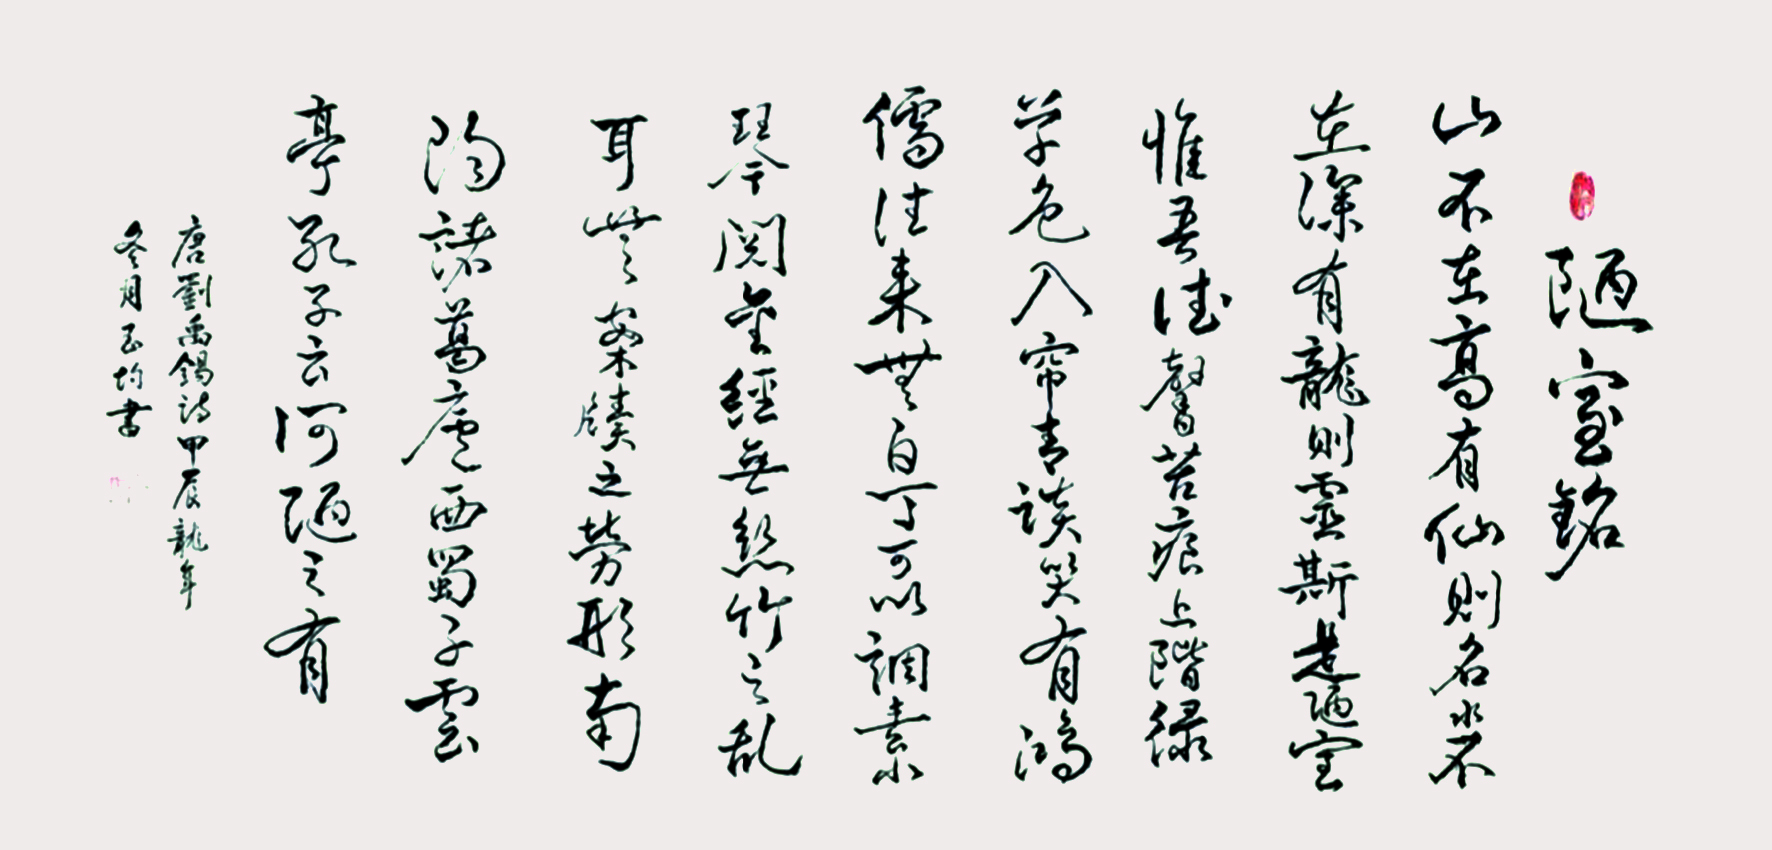 陋室銘
山不在高有仙則名水不
在深有龍則靈斯是陋室
惟吾德馨苔痕上階緑
草色入帘青談笑有鴻
儒往来無白丁可以調素
琴閱金經無絲竹之乱
耳無案牘之勞形南
陽諸葛廬西蜀子雲
亭孔子云何陋之有
唐劉禹錫詩甲辰龍年
冬月玉均書